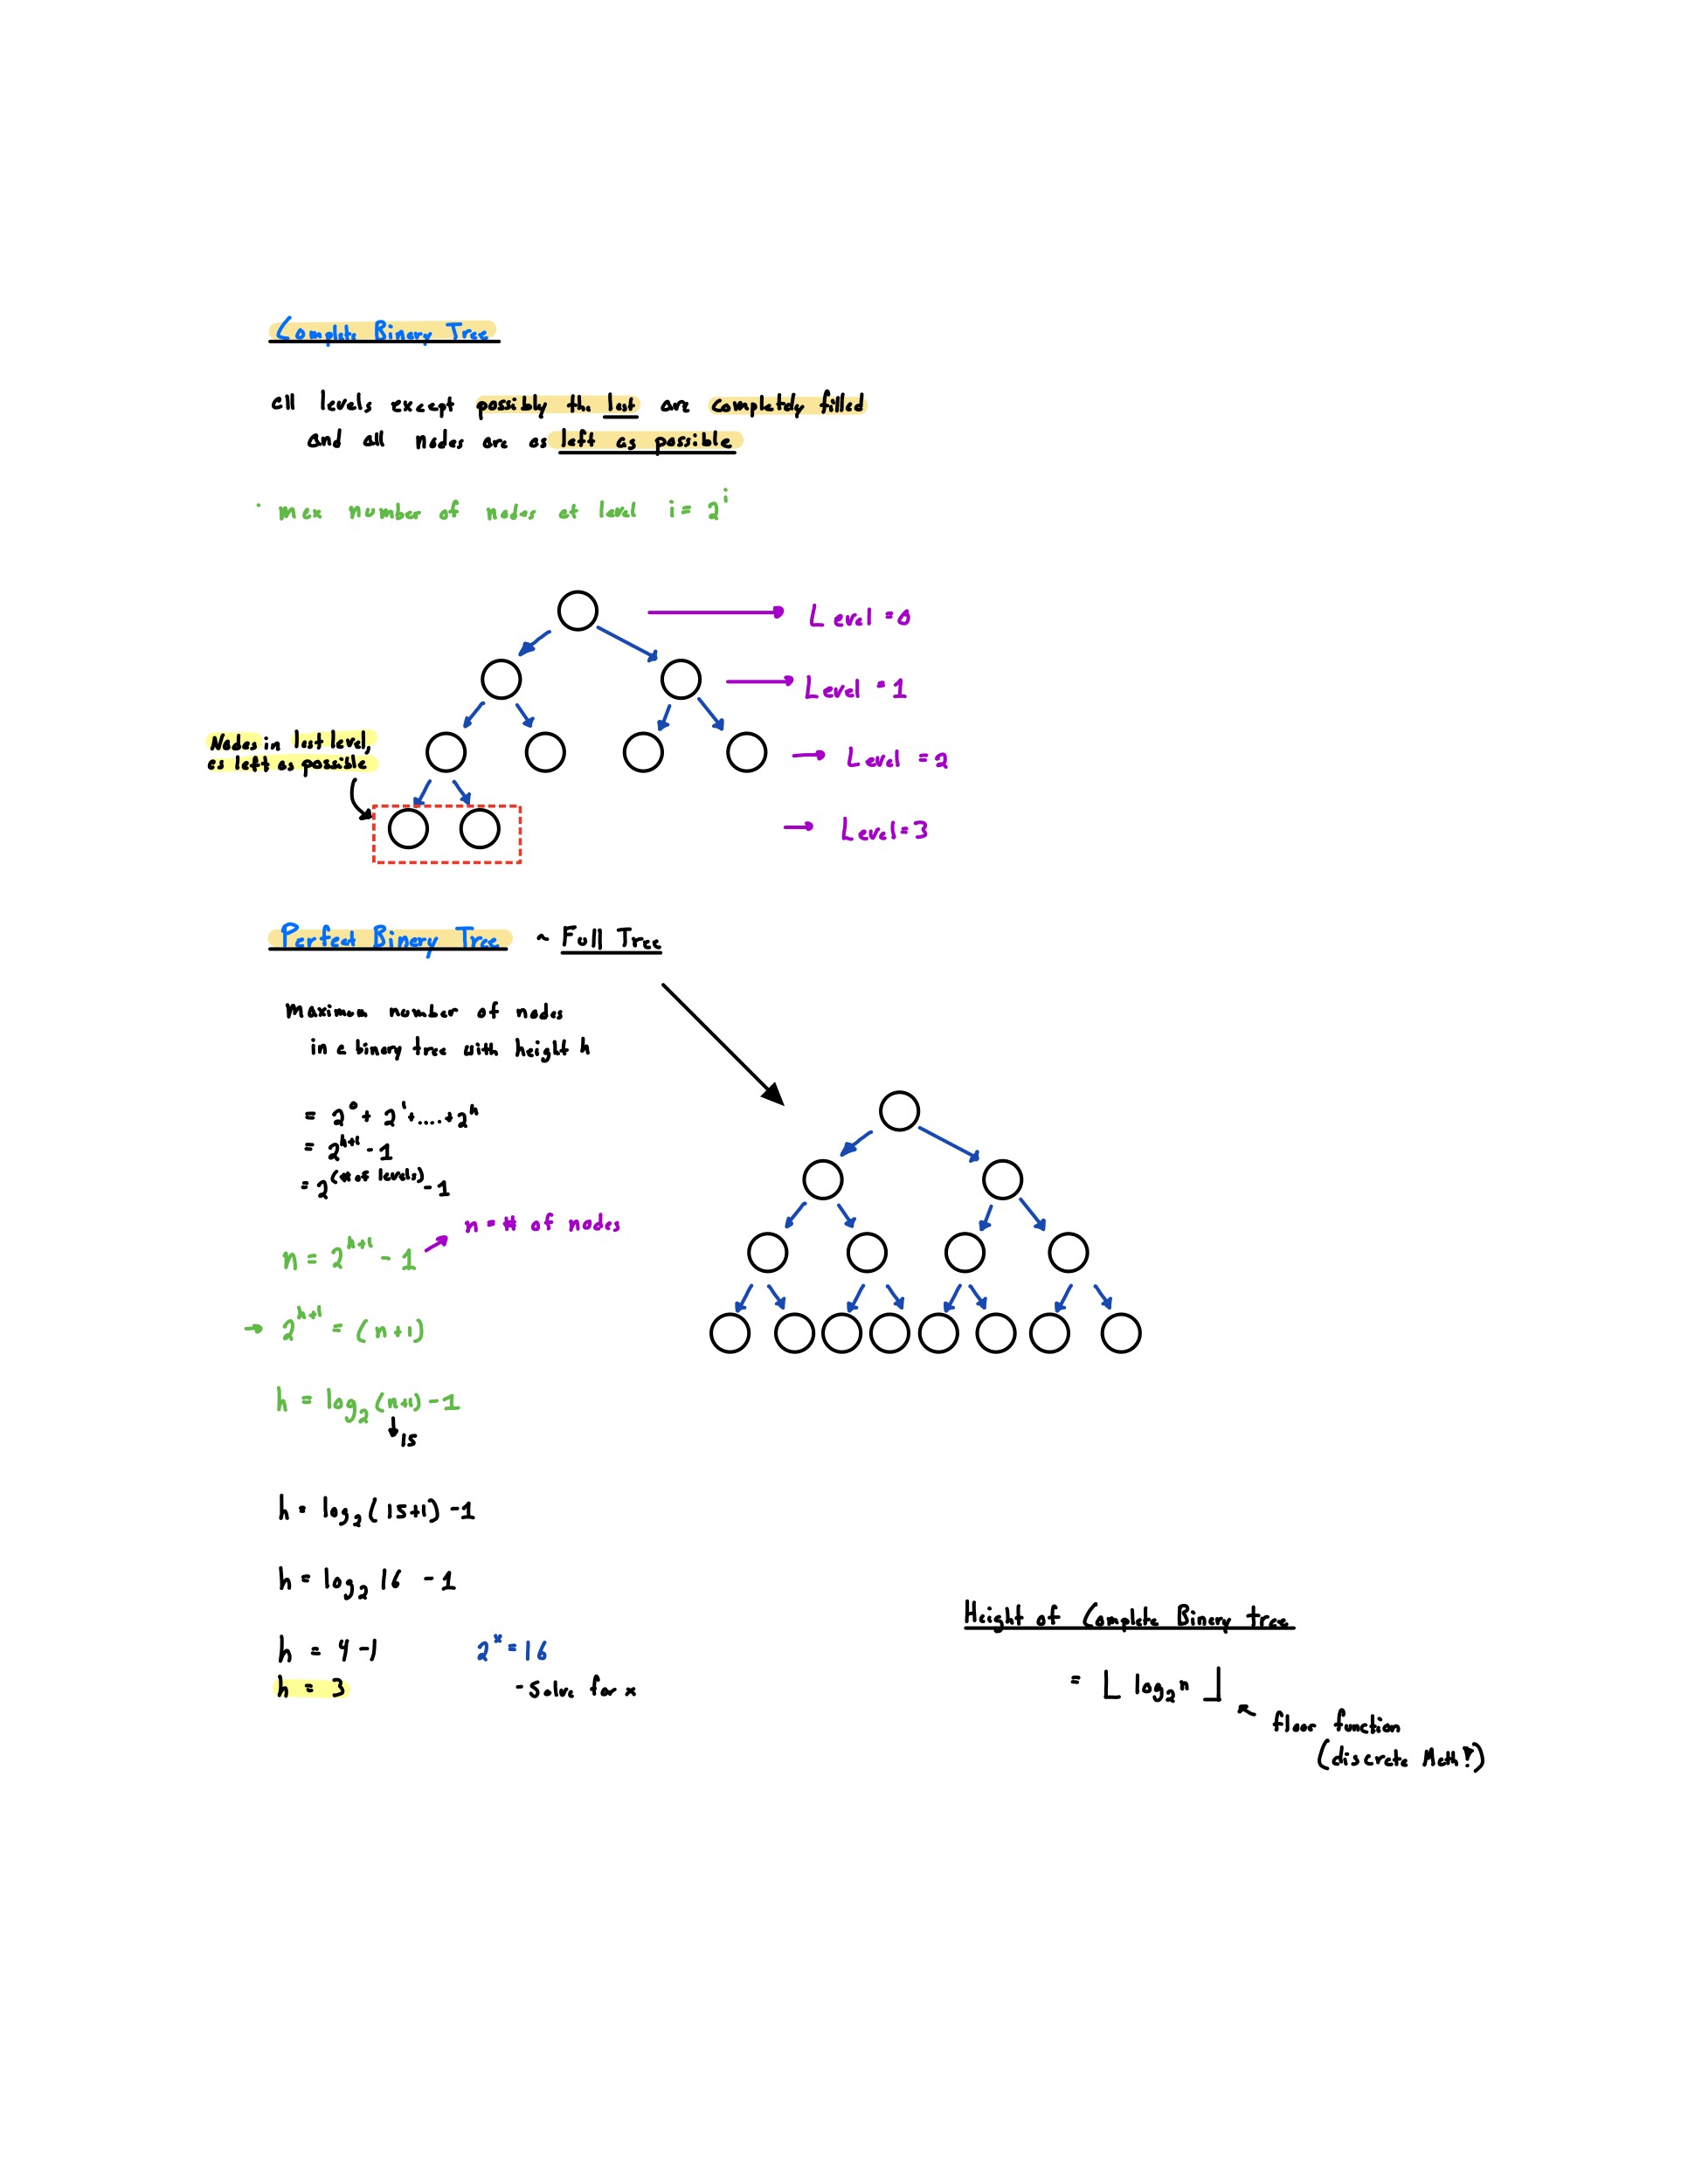 Complete Binary Tree
all levels except possibly the last are completely filled
and all nodes are as left as possible
· max number of nodes at level i = 2^i
Level = 0
Level = 1
Nodes in last level,
as left as possible
Level = 2
Level = 3
Perfect Binary Tree ~ Full Tree
Maximum number of nodes
in a binary tree with height h
= 2^0 + 2^1 + ..... + 2^h
= 2^(h+1) - 1
= 2^(# of levels) - 1
n = # of nodes
n = 2^(h+1) - 1
→ 2^(h+1) = (n+1)
h = log₂ (n+1) - 1
15
h = log₂ (15+1) - 1
h = log₂ 16 - 1
h = 4 - 1
2^x = 16
h = 3
- Solve for x
Height of Complete Binary tree
= ⌊ log₂ n ⌋
floor function
(discrete Math!)